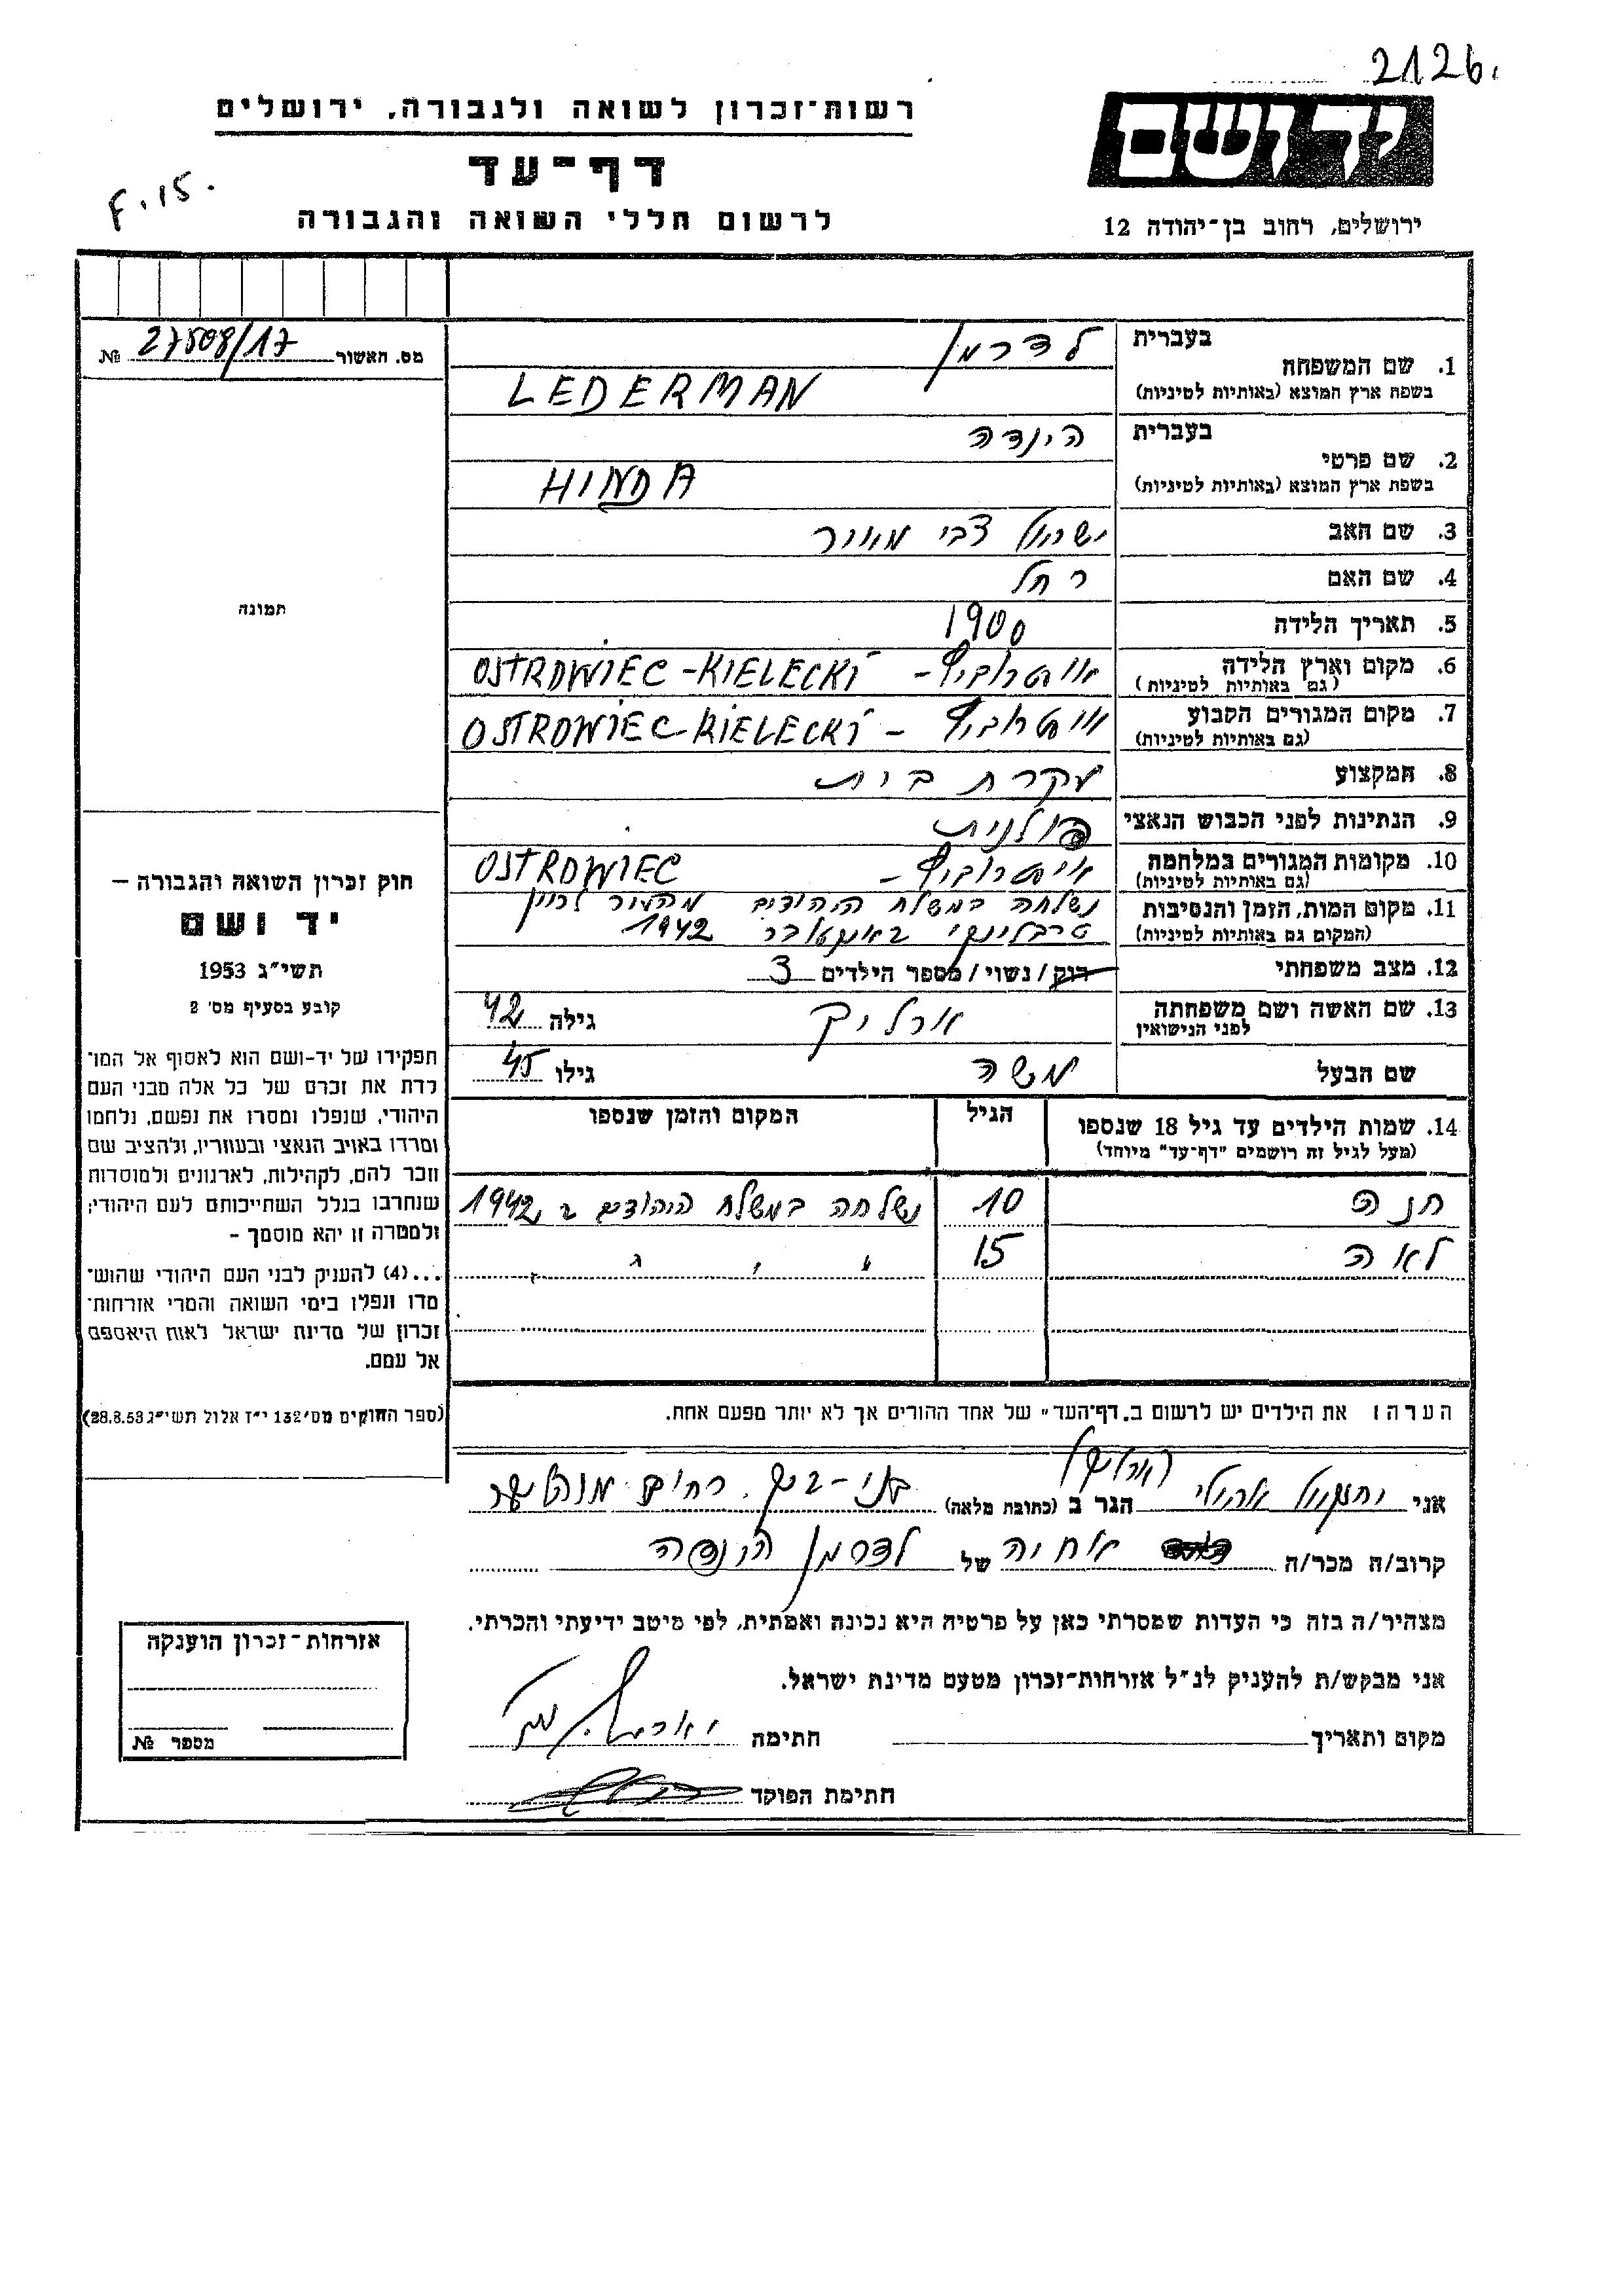 2126.
רשות-זכרון לשואה ולגבורה, ירושלים
דף-עד
לרשום חללי השואה והגבורה
F.15.
יד ושם
ירושלים, רחוב בן-יהודה 12
מס. האשור 27508/17 №
תמונה
חוק זכרון השואה והגבורה –
יד ושם
תשי"ג 1953
קובע בסעיף מס' 2
תפקידו של יד-ושם הוא לאסוף אל המו-
לדת את זכרם של כל אלה מבני העם
היהודי, שנפלו ומסרו את נפשם, נלחמו
ומרדו באויב הנאצי ובעוזריו, ולהציב שם
וזכר להם, לקהילות, לארגונים ולמוסדות
שנחרבו בגלל השתייכותם לעם היהודי;
ולמטרה זו יהא מוסמך –
...(4) להעניק לבני העם היהודי שהוש-
מדו ונפלו בימי השואה והמרי אזרחות-
זכרון של מדינת ישראל לאות היאספם
אל עמם.
(ספר החוקים מס' 132 י"ז אלול תשי"ג 28.8.53)
1. שם המשפחה בעברית לדרמן
בשפת ארץ המוצא (באותיות לטיניות) LEDERMAN
2. שם פרטי בעברית הינדה
בשפת ארץ המוצא (באותיות לטיניות) HINDA
3. שם האב ישראל צבי מאיר
4. שם האם רחל
5. תאריך הלידה 1900
6. מקום וארץ הלידה (גם באותיות לטיניות) אוסטרוביץ – OSTROWIEC-KIELECKI
7. מקום המגורים הקבוע (גם באותיות לטיניות) אוסטרוביץ – OSTROWIEC-KIELECKI
8. המקצוע עקרת בית
9. הנתינות לפני הכבוש הנאצי פולנית
10. מקומות המגורים במלחמה (גם באותיות לטיניות) אוסטרוביץ – OSTROWIEC
11. מקום המות, הזמן והנסיבות נשלחה במשלח היהודים מהעיר לכוון
(המקום גם באותיות לטיניות) טרבלינקי באוקטובר 1942
12. מצב משפחתי רווק/נשוי/מספר הילדים 3
13. שם האשה ושם משפחתה לפני הנישואין ארליך גילה 42
שם הבעל משה גילו 45
14. שמות הילדים עד גיל 18 שנספו הגיל המקום והזמן שנספו
(מעל לגיל זה רושמים "דף-עד" מיוחד)
חנה 10 נשלחה במשלח היהודים ב 1942
לאה 15 " " " "
הערה: את הילדים יש לרשום ב"דף-העד" של אחד ההורים אך לא יותר מפעם אחת.
(ארליך)
אני יחזקאל הגר ב (כתובת מלאה) בני-ברק, רחוב
קרוב/ה מכר/ה אחיה של לדרמן הינדה
מצהיר/ה בזה כי העדות שמסרתי כאן על פרטיה היא נכונה ואמתית, לפי מיטב ידיעתי והכרתי.
אני מבקש/ת להעניק לנ"ל אזרחות-זכרון מטעם מדינת ישראל.
מקום ותאריך חתימה
חתימת הפוקד
אזרחות-זכרון הוענקה
מספר №